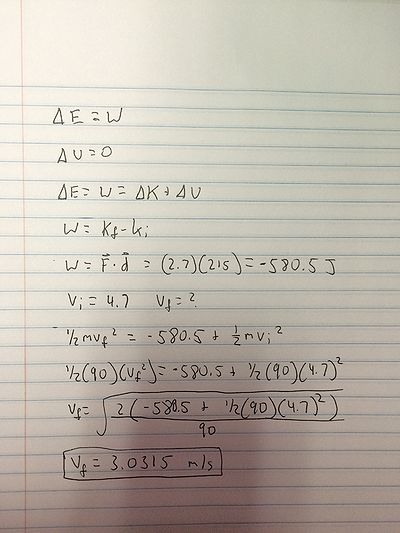 ΔE = W
ΔU = 0
ΔE = W = ΔK + ΔU
W = Kf - ki
W = F⃗ · d⃗ = (2.7)(215) = -580.5 J
Vi = 4.7 Vf = ?
1/2 mvf² = -580.5 + 1/2 mvi²
1/2(90)(vf²) = -580.5 + 1/2(90)(4.7)²
Vf = √(2(-580.5 + 1/2(90)(4.7)²)/90)
Vf = 3.0315 m/s